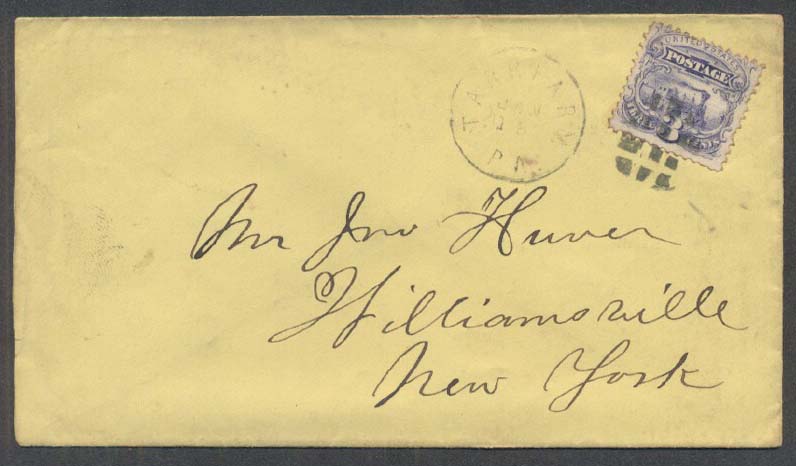 UNITED STATES
POSTAGE
THREE 3 CENTS
JAN
PA
Mr Jno Huver
Williamsville
New York